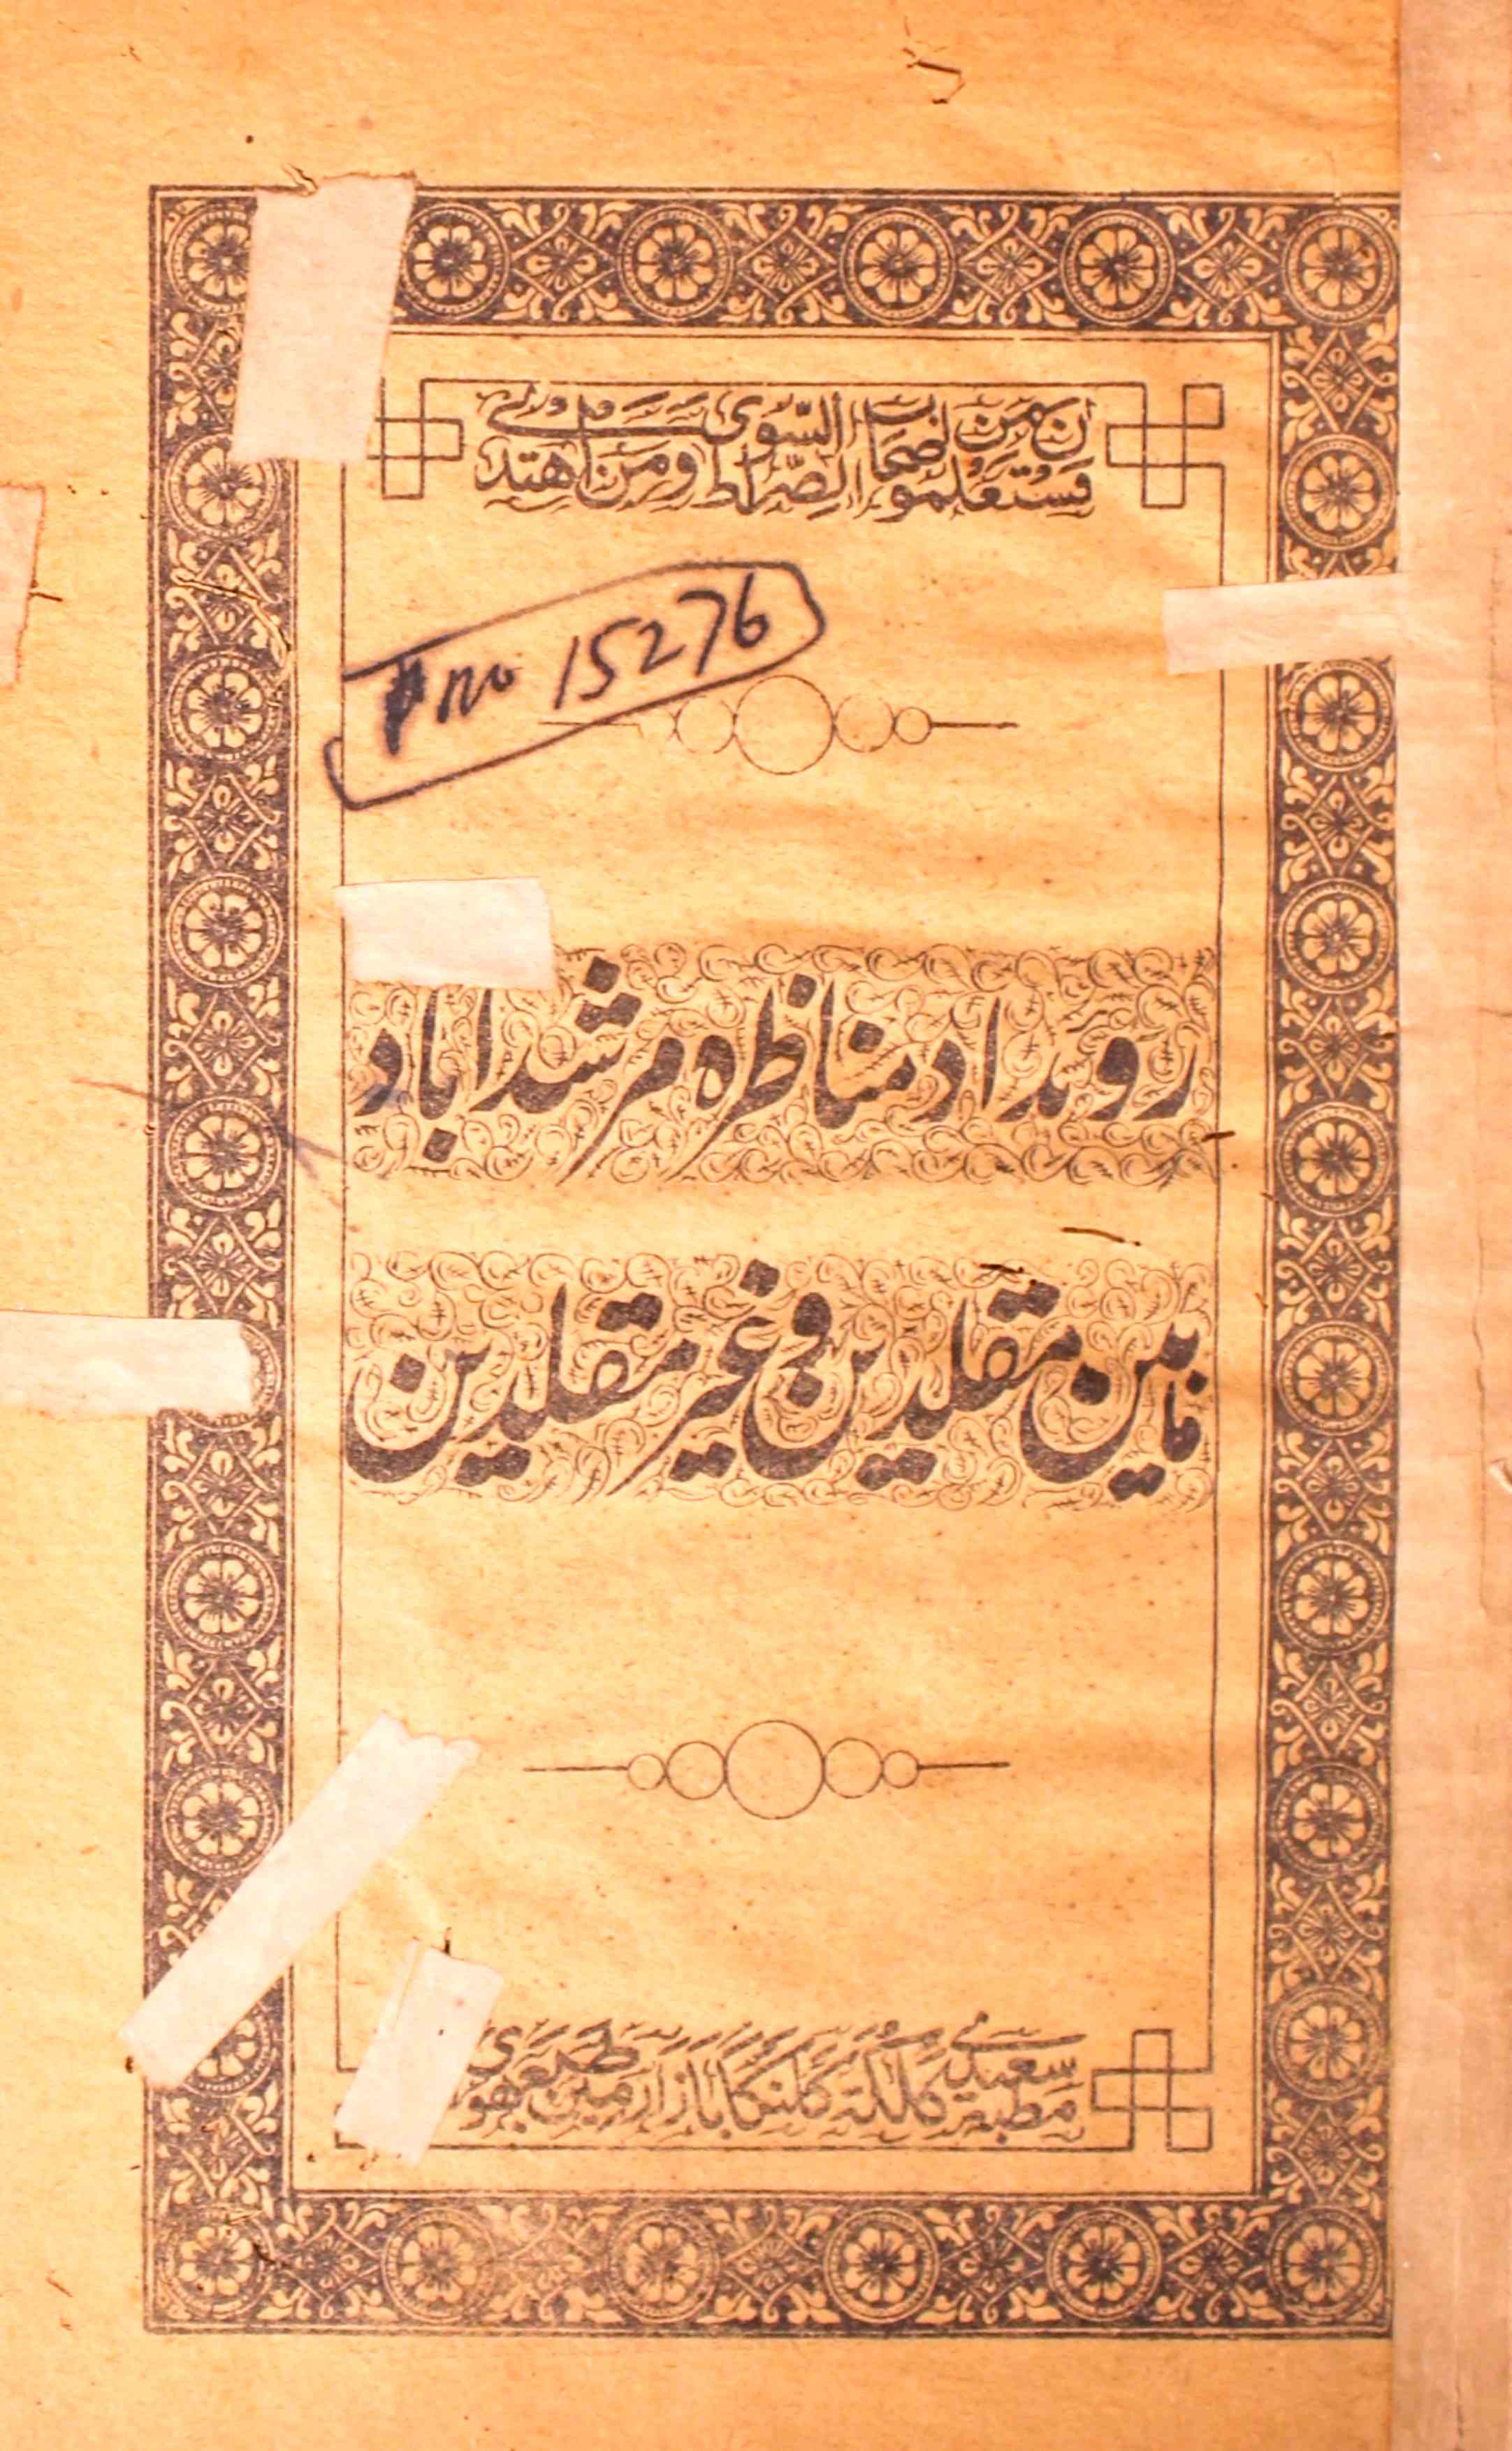 فستعلمون من اصحاب الصراط السوی ومن اهتدی
no 15276
رویداد مناظره مرشداباد
مابین مقلدین و غیر مقلدین
مطبع سعیدی کلکته کلنگا بازار مین طبع هوی